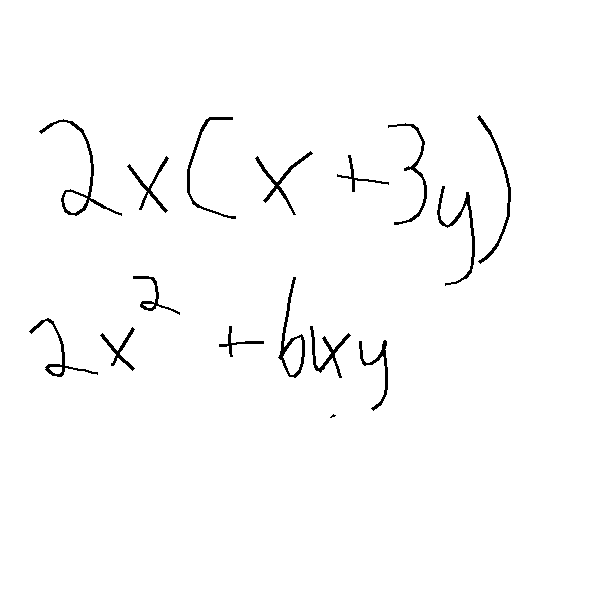 2x(x+3y)
2x² + 6xy